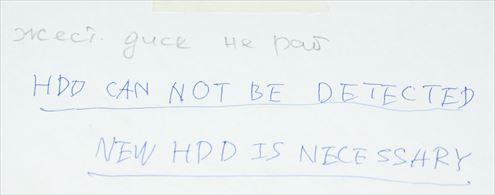 жест. диск не раб
HDD CAN NOT BE DETECTED
NEW HDD IS NECESSARY